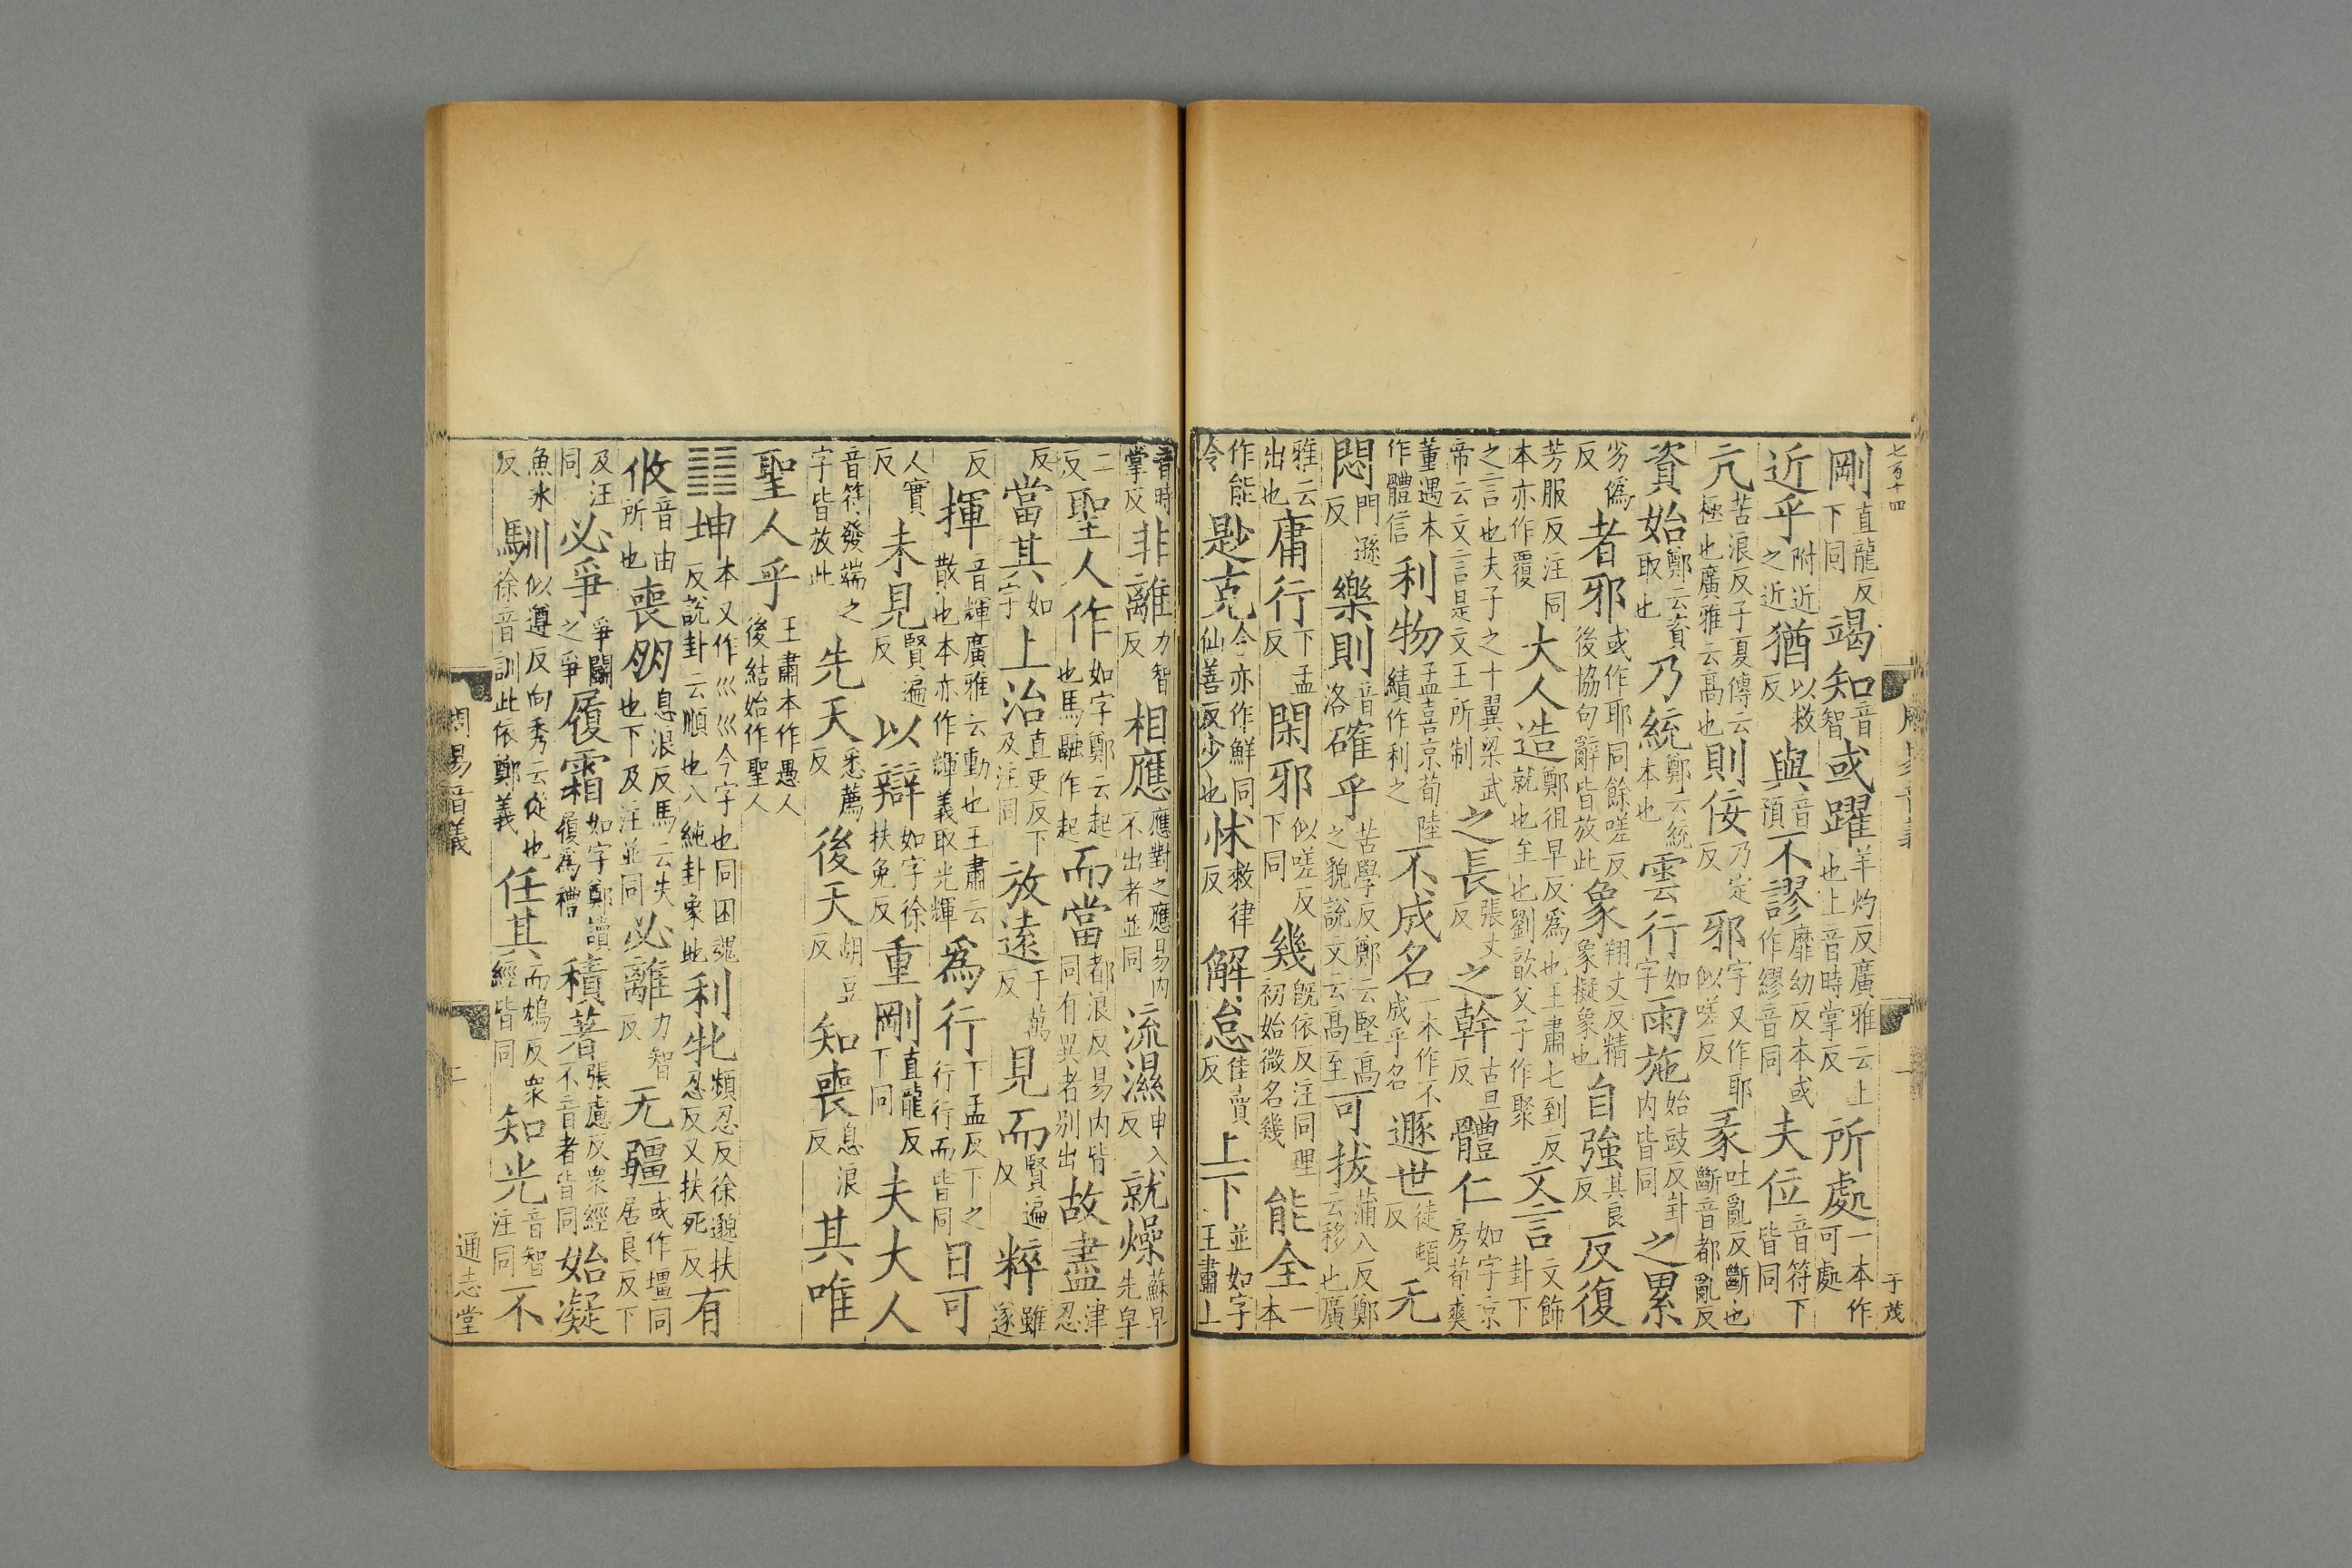 七百十四
于茂
剛直龍反下同竭知音智或躍羊灼反廣雅云上也上音時掌反所處一本作可處
近乎附近之近猶以救反與音預不謬靡幼反本或作繆音同夫位音符下皆同
亢苦浪反子夏傳云極也廣雅云高也則佞乃定反邪字又作耶似嗟反彖吐亂反斷也斷音都亂反
資始鄭云資取也乃統鄭云統本也雲行如字雨施始豉反卦内皆同之累
劣僞反者邪或作耶同餘嗟反後協句辭皆放此象翔丈反精象擬象也自強其良反反復
芳服反注同本亦作覆大人造鄭徂早反爲也王肅七到反就也至也劉歆父子作聚文言文飾卦下
之言也夫子之十翼梁武帝云文言是文王所制之長張丈反之幹古旦反體仁如字京房荀爽
董遇本作體信利物孟喜京荀陸績作利之不成名一本作不成乎名遯世徒頓反无
悶門遜反樂則音洛確乎苦學反鄭云堅高之貌說文云高至可拔蒲八反鄭云移也廣
雅云出也庸行下孟反閑邪似嗟反下同幾旣依反注同理初始微名幾能全一本
作能令匙克今亦作鮮同仙善反少也怵敕律反解怠佳賣反上下並如字王肅上
音時掌反非離力智反相應應對之應易内不出者並同流濕申入反就燥蘇早先皁
二反聖人作如字鄭云起也馬融作起而當都浪反易内皆同有異者别出故盡津忍
反當其如字上治直更反下及注同放遠于萬反見而賢遍反粹雖遂
反揮音輝廣雅云動也王肅云散也本亦作輝義取光輝爲行下孟反下之行行而皆同日可
人實反未見賢遍反以辯如字徐扶免反重剛直龍反下同夫大人
音符發端之字皆放此先天悉薦反後天胡豆反知喪息浪反其唯
聖人乎王肅本作愚人後結始作聖人
䷁坤本又作巛巛今字也同困魂反說卦云順也八純卦象地利牝頻忍反徐邈扶忍反又扶死反有
攸音由所也喪朋息浪反馬云失也下及注並同必離力智反无疆或作壃同居良反下
及注同必爭爭鬭之爭履霜如字鄭讀履爲禮積著張慮反衆經不音者皆同始凝
魚冰反馴似遵反向秀云從也徐音訓此依鄭義任其而鴆反衆經皆同知光音智注同不
周易音義
二
通志堂